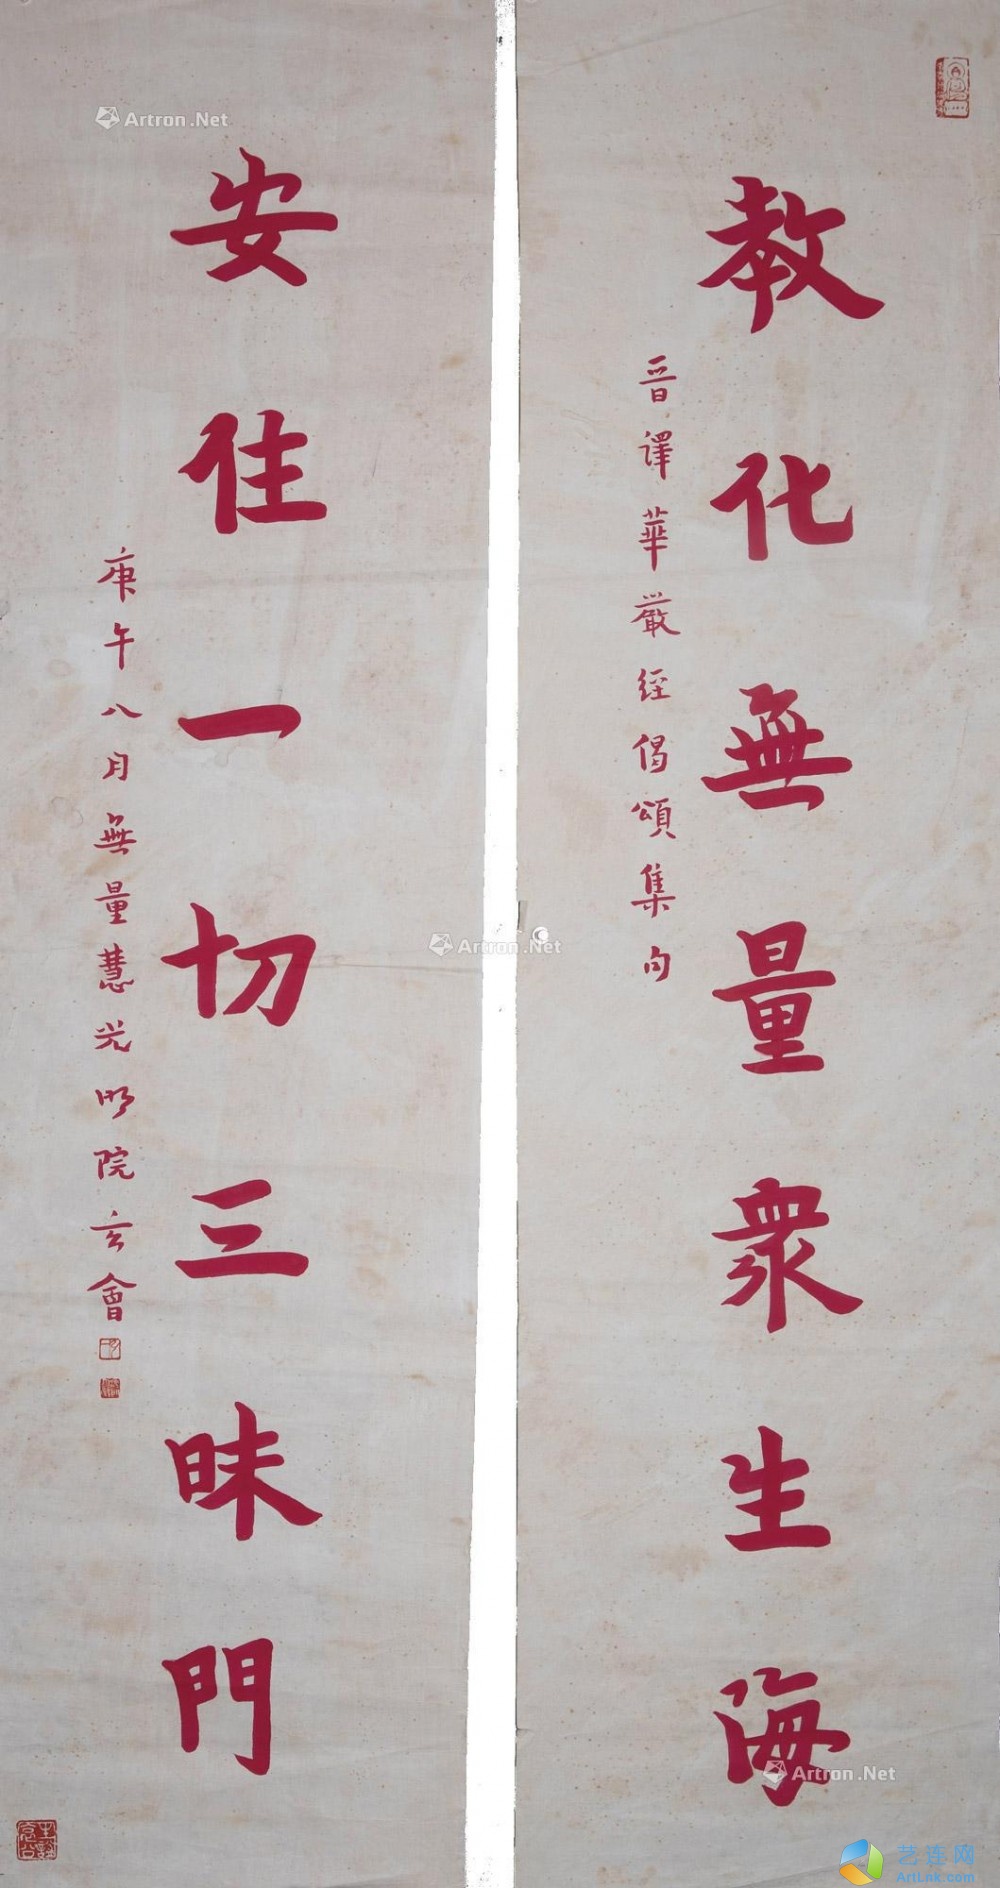 教化無量衆生海
晉譯華嚴經偈頌集句
安住一切三昧門
庚午八月無量慧光明院玄會
Artron.Net
Artron.Net
Artron.Net
艺连网
ArtLnk.com